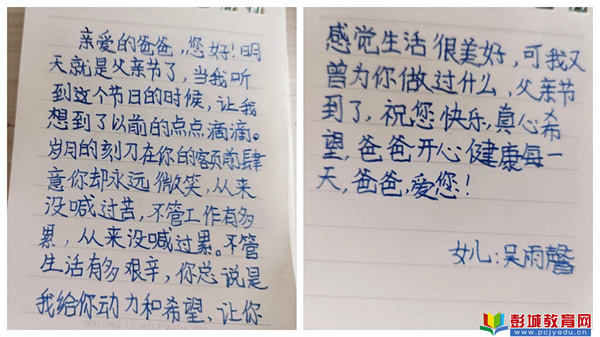 亲爱的爸爸，您好！明
天就是父亲节了，当我听
到这个节日的时候，让我
想到了以前的点点滴滴。
岁月的刻刀在你的额前肆
意你却永远微笑，从来
没喊过苦，不管工作有多
累，从来没喊过累。不管
生活有多艰辛，你总说是
我给你动力和希望、让你
感觉生活很美好，可我又
曾为你做过什么，父亲节
到了，祝您快乐，真心希
望，爸爸开心健康每一
天，爸爸，爱您！
女儿：吴雨馨
彭城教育网
www.pcjyedu.cn